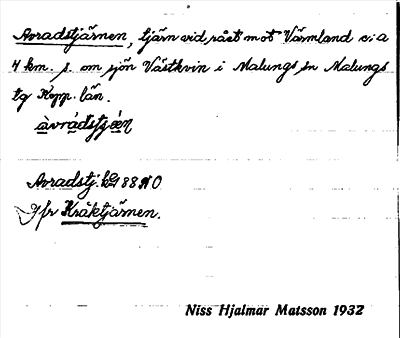 Avradstjärnen, tjärn vid rået mot Värmland c:a
4 km. s. om sjön Västkvin i Malungs sn Malungs
tg Kopp. län.
àvrádstjé̀n
Avradstj. 88 NO
Jfr Kråktjärnen.
Niss Hjalmar Matsson 1932